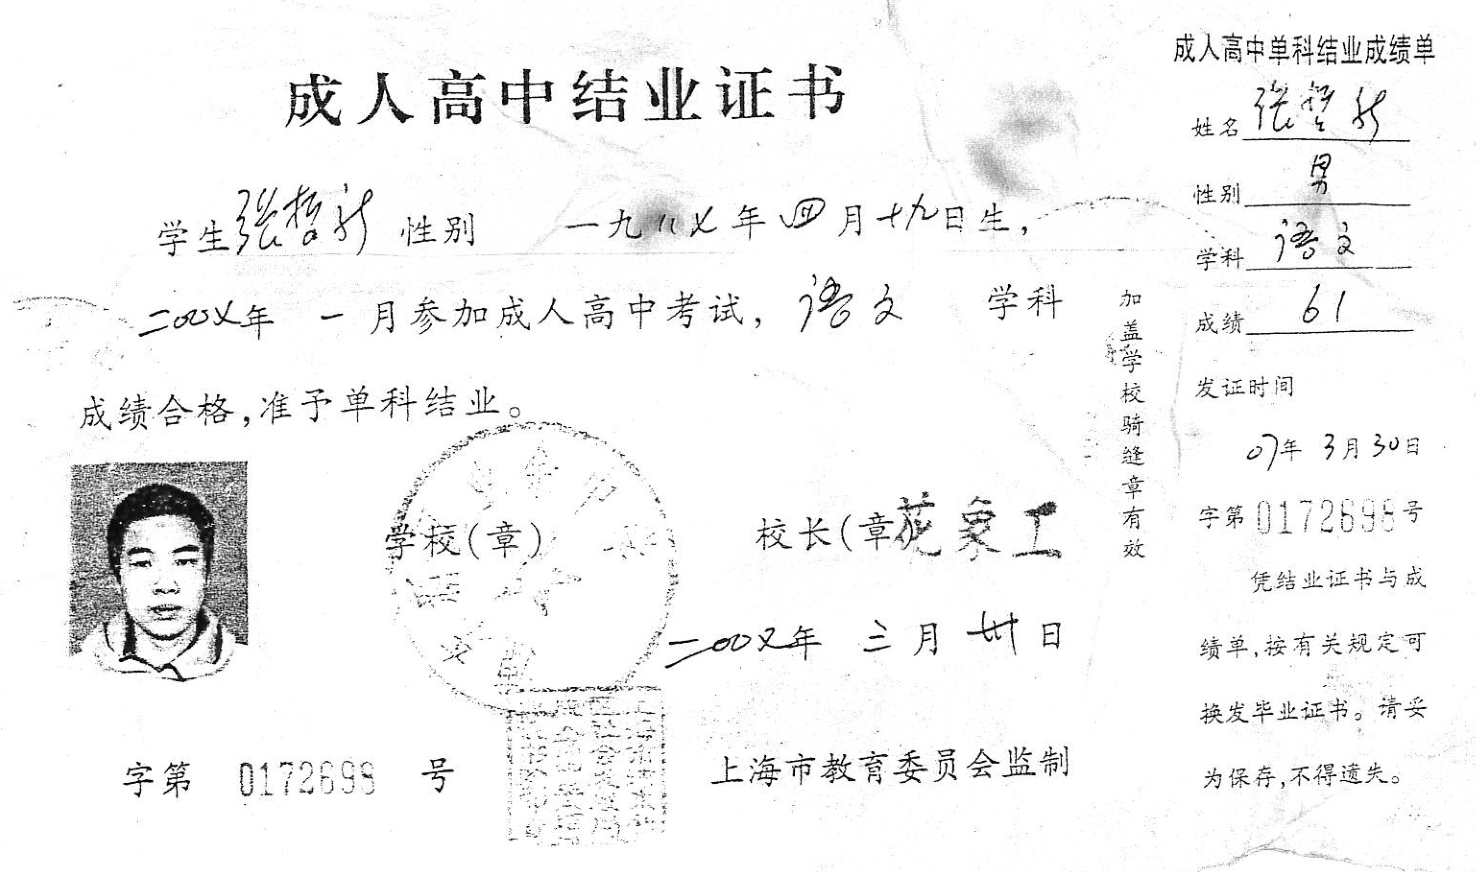 成人高中结业证书
学生张哲新 性别 一九八七年四月十九日生，
二00七年 一月参加成人高中考试，语文 学科
成绩合格，准予单科结业。
学校（章） 校长（章）
二00七年 三月卅日
字第 0172698 号 上海市教育委员会监制
加盖学校骑缝章有效
成人高中单科结业成绩单
姓名 张哲新
性别 男
学科 语文
成绩 61
发证时间
07年3月30日
字第0172698号
凭结业证书与成
绩单，按有关规定可
换发毕业证书。请妥
为保存，不得遗失。